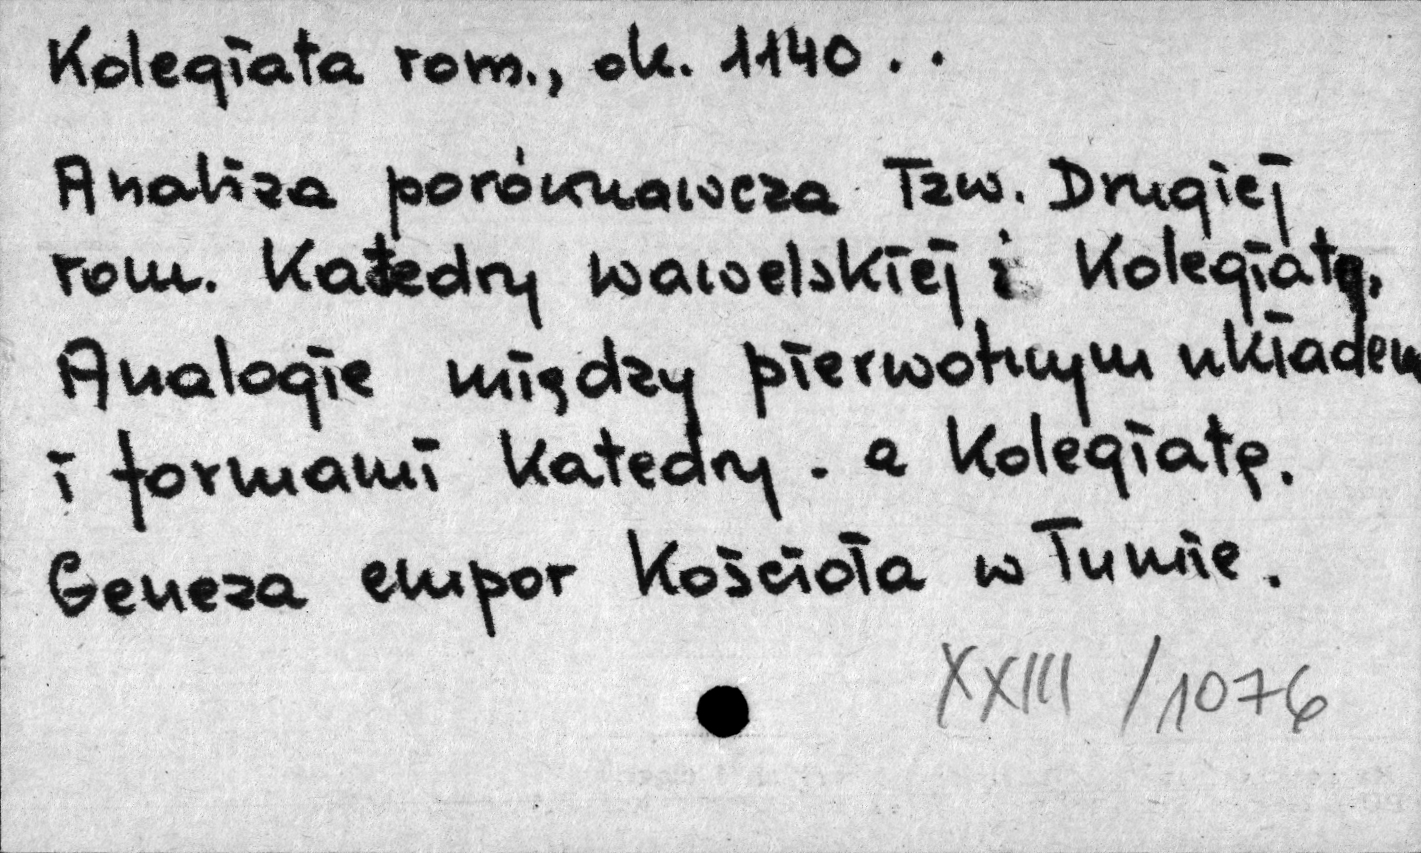 Kolegiata rom., ok. 1140 . .
Analiza porównawcza Tzw. Drugiej
rom. Katedry wawelskiej i Kolegiaty.
Analogie między pierwotnym układem
i formami Katedry . a Kolegiatę.
Geneza empor Kościoła w Tumie.
XXIII /1076